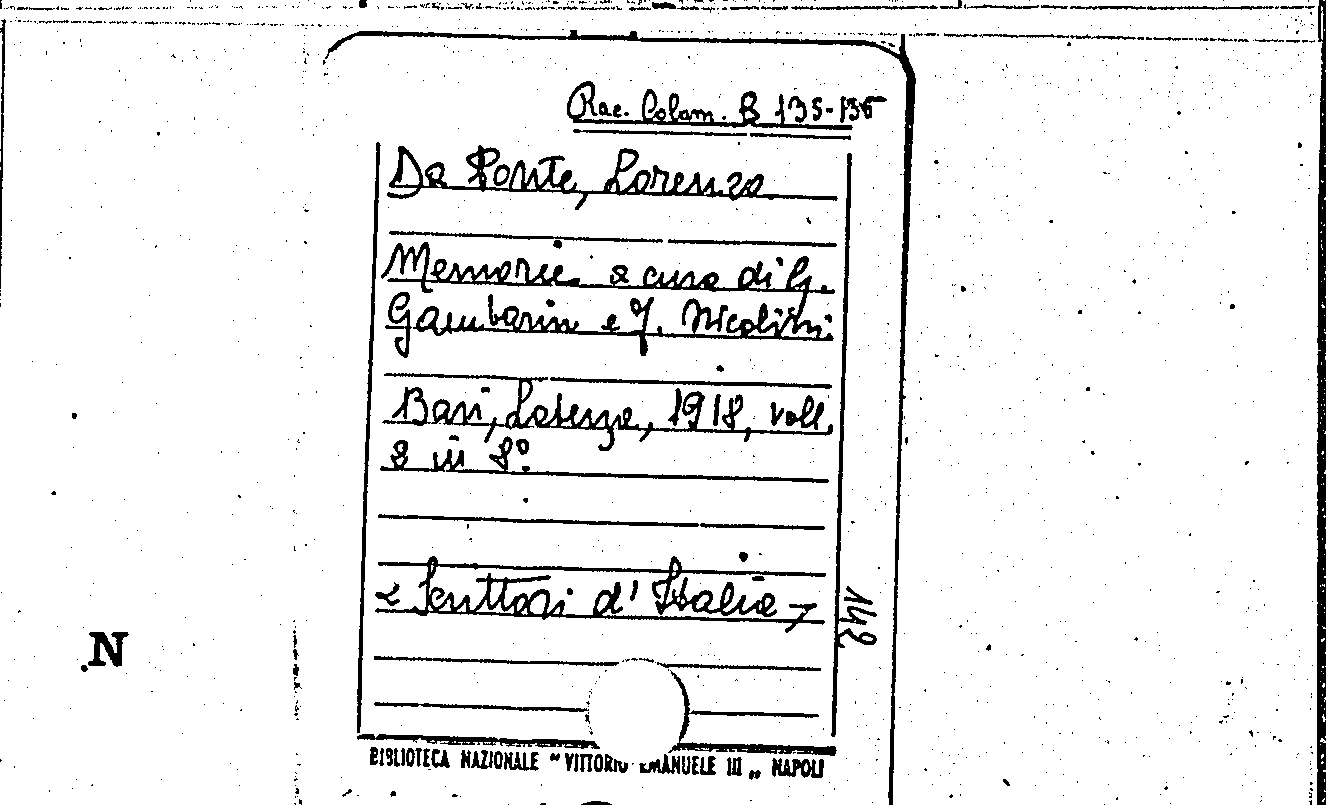 Rac. Colam. B 135-136
Da Ponte, Lorenzo.
Memorie. a cura di G.
Gambarin e F. Nicolini
Bari, Laterza, 1918, voll.
2 in 8°
« Scrittori d'Italia »
142
N
BIBLIOTECA NAZIONALE " VITTORIO EMANUELE III „ NAPOLI